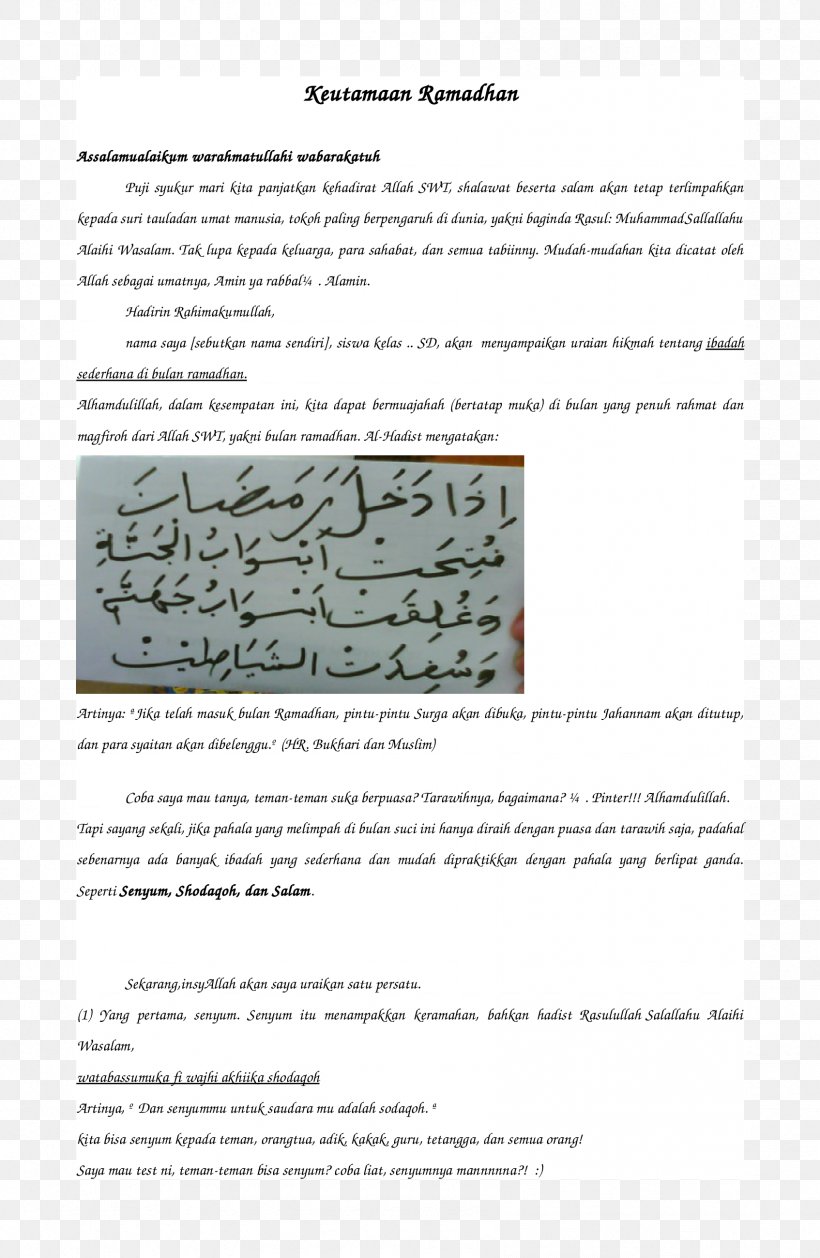 Keutamaan Ramadhan
Assalamualaikum warahmatullahi wabarakatuh
Puji syukur mari kita panjatkan kehadirat Allah SWT, shalawat beserta salam akan tetap terlimpahkan
kepada suri tauladan umat manusia, tokoh paling berpengaruh di dunia, yakni baginda Rasul: MuhammadSallallahu
Alaihi Wasalam. Tak lupa kepada keluarga, para sahabat, dan semua tabiinny. Mudah-mudahan kita dicatat oleh
Allah sebagai umatnya, Amin ya rabbal¼ . Alamin.
Hadirin Rahimakumullah,
nama saya [sebutkan nama sendiri], siswa kelas .. SD, akan menyampaikan uraian hikmah tentang ibadah
sederhana di bulan ramadhan.
Alhamdulillah, dalam kesempatan ini, kita dapat bermuajahah (bertatap muka) di bulan yang penuh rahmat dan
magfiroh dari Allah SWT, yakni bulan ramadhan. Al-Hadist mengatakan:
إِذَا دَخَلَ رَمَضَانَ
فُتِحَتْ أَبْوَابُ الْجَنَّةِ
وَغُلِقَتْ أَبْوَابُ جَهَنَّمَ
وَسُفِدَتْ الشَّيَاطِيْنْ
Artinya: ªJika telah masuk bulan Ramadhan, pintu-pintu Surga akan dibuka, pintu-pintu Jahannam akan ditutup,
dan para syaitan akan dibelenggu.º (HR. Bukhari dan Muslim)
Coba saya mau tanya, teman-teman suka berpuasa? Tarawihnya, bagaimana? ¼ . Pinter!!! Alhamdulillah.
Tapi sayang sekali, jika pahala yang melimpah di bulan suci ini hanya diraih dengan puasa dan tarawih saja, padahal
sebenarnya ada banyak ibadah yang sederhana dan mudah dipraktikkan dengan pahala yang berlipat ganda.
Seperti Senyum, Shodaqoh, dan Salam.
Sekarang,insyAllah akan saya uraikan satu persatu.
(1) Yang pertama, senyum. Senyum itu menampakkan keramahan, bahkan hadist Rasulullah Salallahu Alaihi
Wasalam,
watabassumuka fi wajhi akhiika shodaqoh
Artinya, º Dan senyummu untuk saudara mu adalah sodaqoh. ª
kita bisa senyum kepada teman, orangtua, adik, kakak, guru, tetangga, dan semua orang!
Saya mau test ni, teman-teman bisa senyum? coba liat, senyumnya mannnnna?! :)